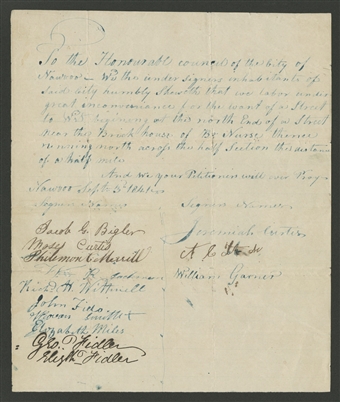 To the Honourable council of the City of
Nauvoo – We the under signers inhabitants of
Said City humbly Sheweth that we labor under
great inconvenience for the want of a Street
to Wit, begining at the north End of a Street
near the Brick house of Br Nurse thence
running north across the half Section the distance
of a half mile
And we your Petitioners will ever Pray
Nauvoo Sept
Signers Names Signers Names
Jacob G. Bigler Jeremiah Curtis
Moses Curtis
Philemon C. Merrill A. C.
William Garner
Richd. H. Wittnell
John Fido
Elizabeth Miles
Geo. P Fidler
Fidler